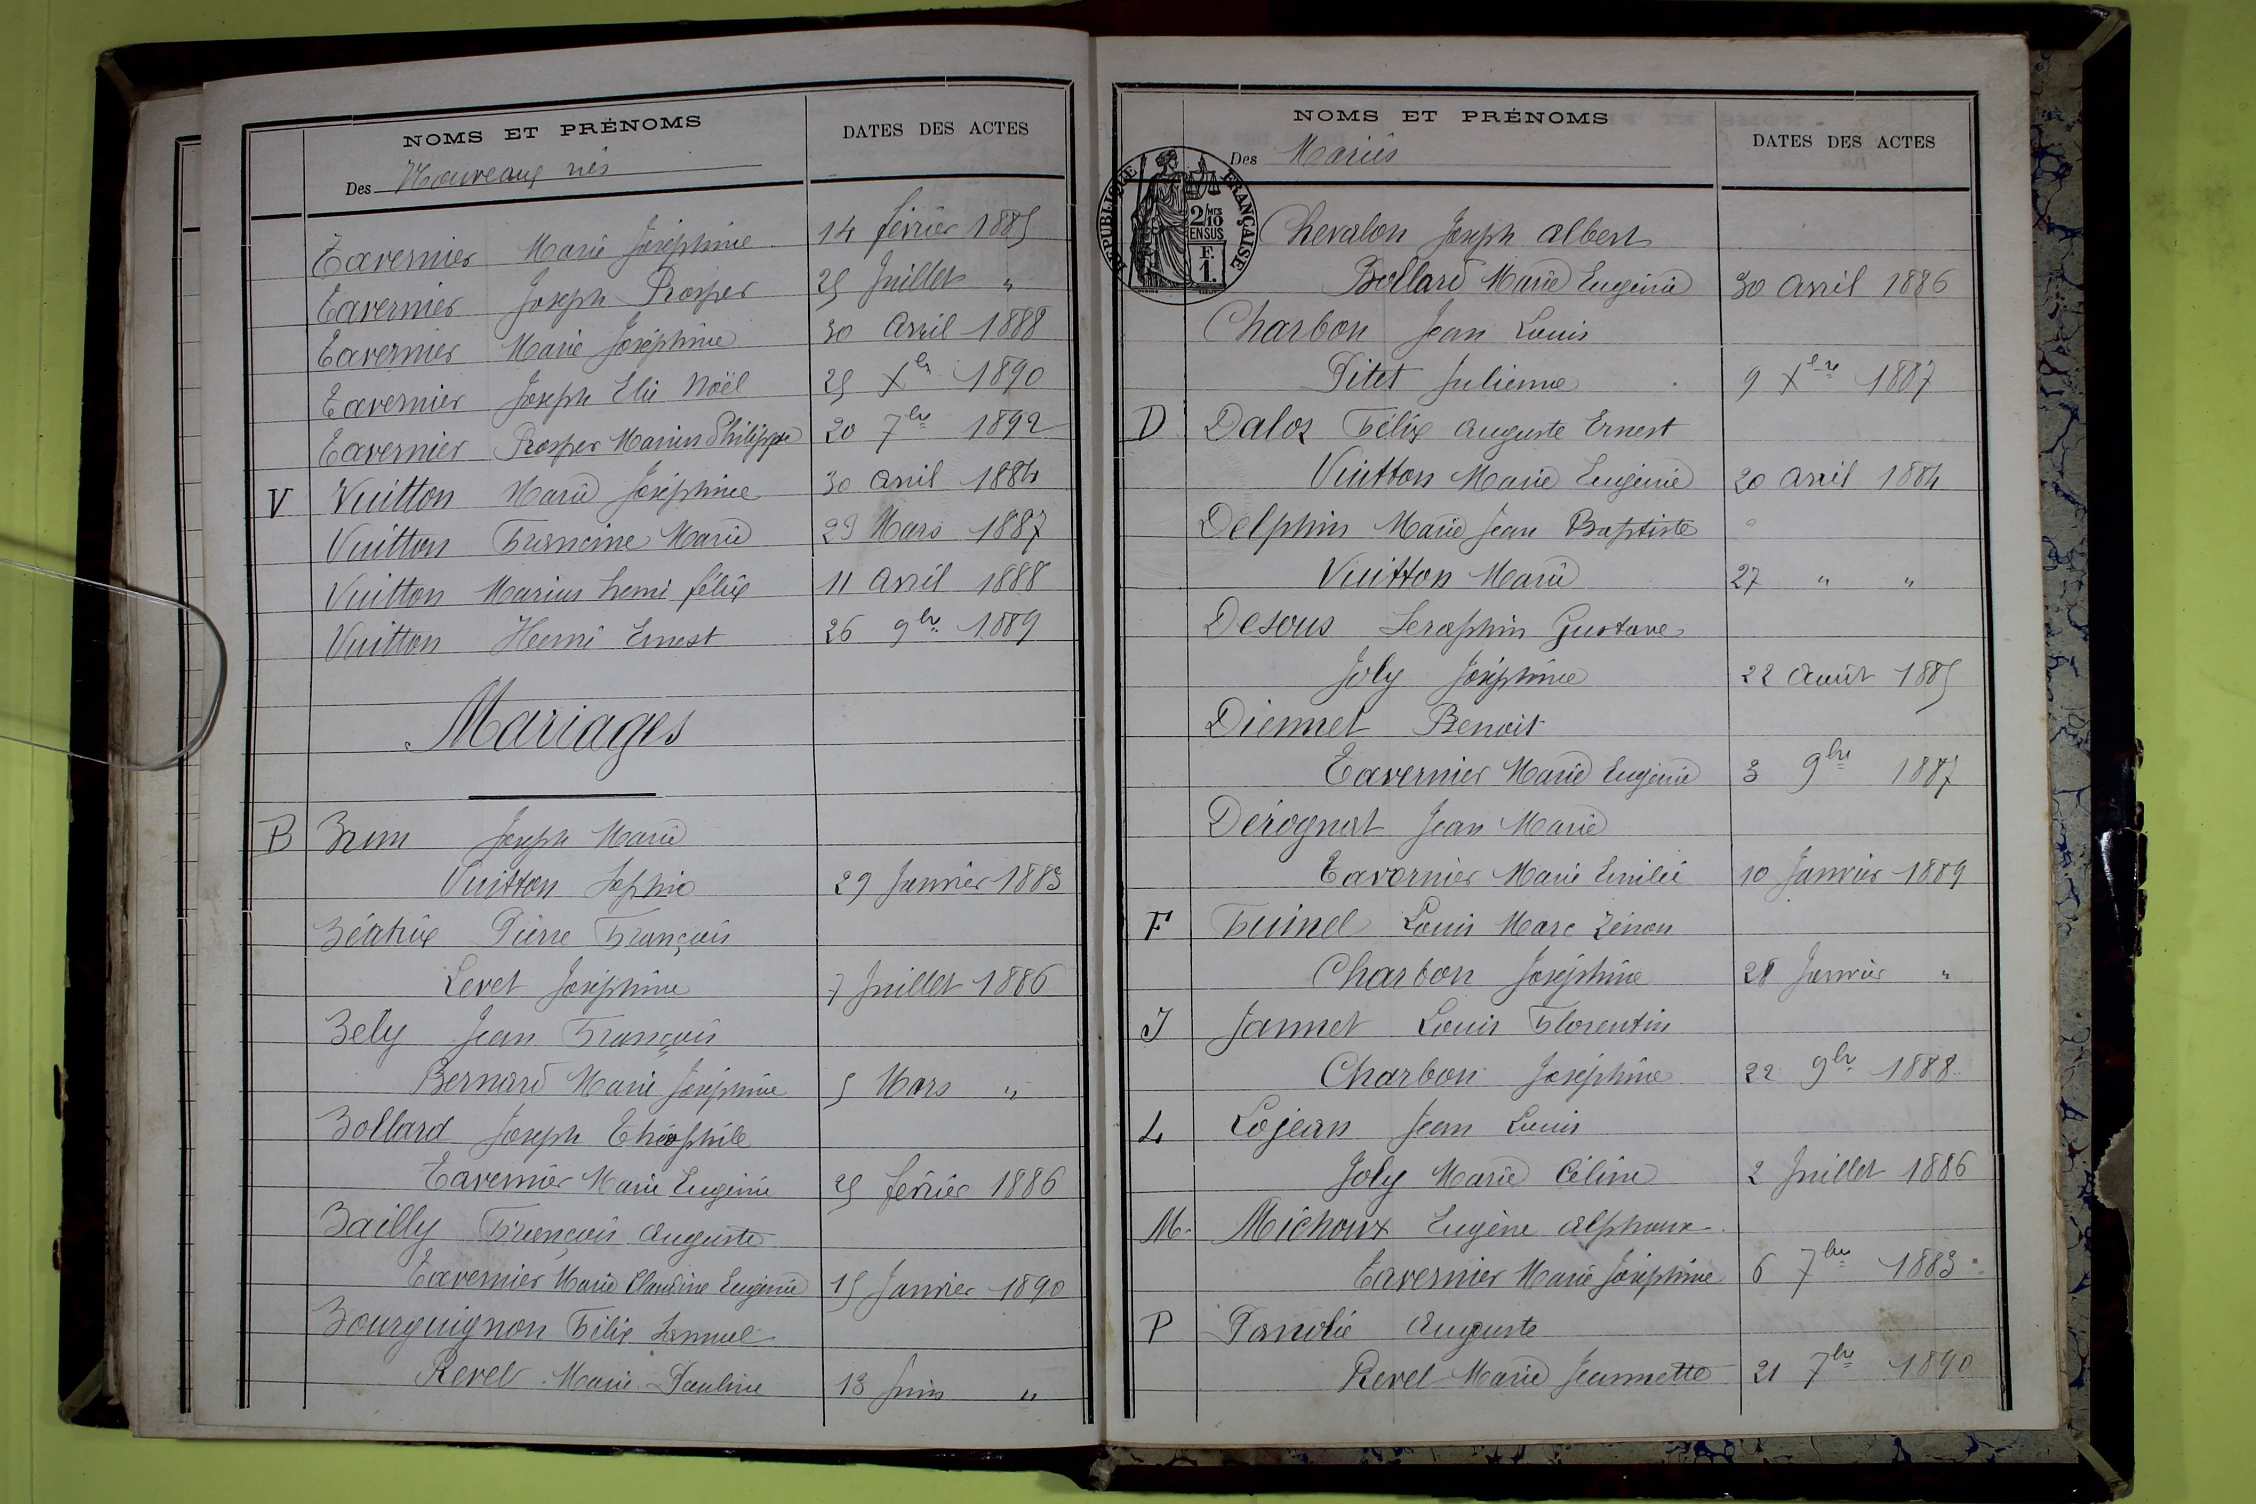 NOMS ET PRÉNOMS DATES DES ACTES
Des Nouveaux nés
Tavernier Marie Joséphine 14 février 1885
Tavernier Joseph Prosper 25 Juillet "
Tavernier Marie Joséphine 30 avril 1888
Tavernier Joseph Elie Noël 25 Xbre 1890
Tavernier Prosper Marius Philippe 20 7bre 1892
V Vuitton Marie Joséphine 30 avril 1884
Vuitton Francine Marie 29 Mars 1887
Vuitton Marius henri félix 11 avril 1888
Vuitton Henri Ernest 26 9bre 1889
Mariages
B Brun Joseph Marie
Vuitton Sophie 29 Janvier 1883
Béatrix Pierre François
Levet Joséphine 7 Juillet 1886
Bely Jean François
Bernard Marie Joséphine 5 Mars "
Bollard Joseph Théophile
Tavernier Marie Eugénie 25 février 1886
Bailly François Auguste
Tavernier Marie Claudine Eugénie 15 Janvier 1890
Bourguignon Félix Samuel
Revel Marie Pauline 13 Juin "
NOMS ET PRÉNOMS DATES DES ACTES
Des Mariés
RÉPUBLIQUE FRANÇAISE
2/10 MES
EN SUS
F.
1.
Chevalon Joseph albert
Bollard Marie Eugénie 30 avril 1886
Charbon Jean Louis
Pitet Julienne 9 Xbre 1887
D Daloz Félix Auguste Ernest
Vuitton Marie Eugénie 20 avril 1884
Delphin Marie Jean Baptiste
Vuitton Marie 27 " "
Desous Seraphin Gustave
Joly Joséphine 22 Août 1885
Diennet Benoit
Tavernier Marie Eugénie 3 9bre 1887
Dérognat Jean Marie
Tavernier Marie Emilie 10 Janvier 1889
F Fuinel Louis Marc Zénon
Charbon Joséphine 28 Janvier "
J Jannet Louis Florentin
Charbon Joséphine 22 9bre 1888
L Lojean Jean Louis
Joly Marie Céline 2 Juillet 1886
M. Michoux Eugène Alphonse
Tavernier Marie Joséphine 6 7bre 1883
P Auguste
Revel Marie Jeannette 21 7bre 1890